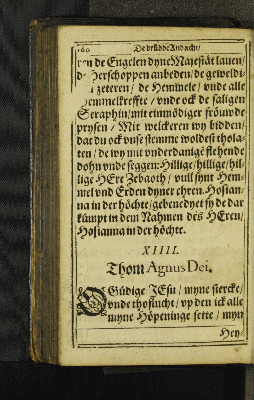 160 De drüdde Andacht/
de Engelen dyne Mayestät lauen/
Herschoppen anbeden/ de geweldi-
geteren/ de Hemmele/ vnde alle
Hemmelkreffte/ vnde ock de saligen
Seraphin/ mit einmödiger fröuwde
prysen/ Mit welckeren wy bidden/
dat du ock vnse stemme woldest thola-
ten/ de wy mit vnderdanigē flehende
dohn vnde seggen: Hillige/ hillige/ hil-
lige HEre Zebaoth/ vull synt Hem-
mel vnd Erden dyner ehren. Hosian-
na in der höchte/ gebenedyet sy de dar
kümpt in dem Nahmen des HEren/
Hosianna in der höchte.
XIIII.
Thom Agnus Dei.
O Güdige JEsu/ myne stercke/
vnde thoflucht/ vp den ick alle
myne Höpeninge sette/ myn
Hey-